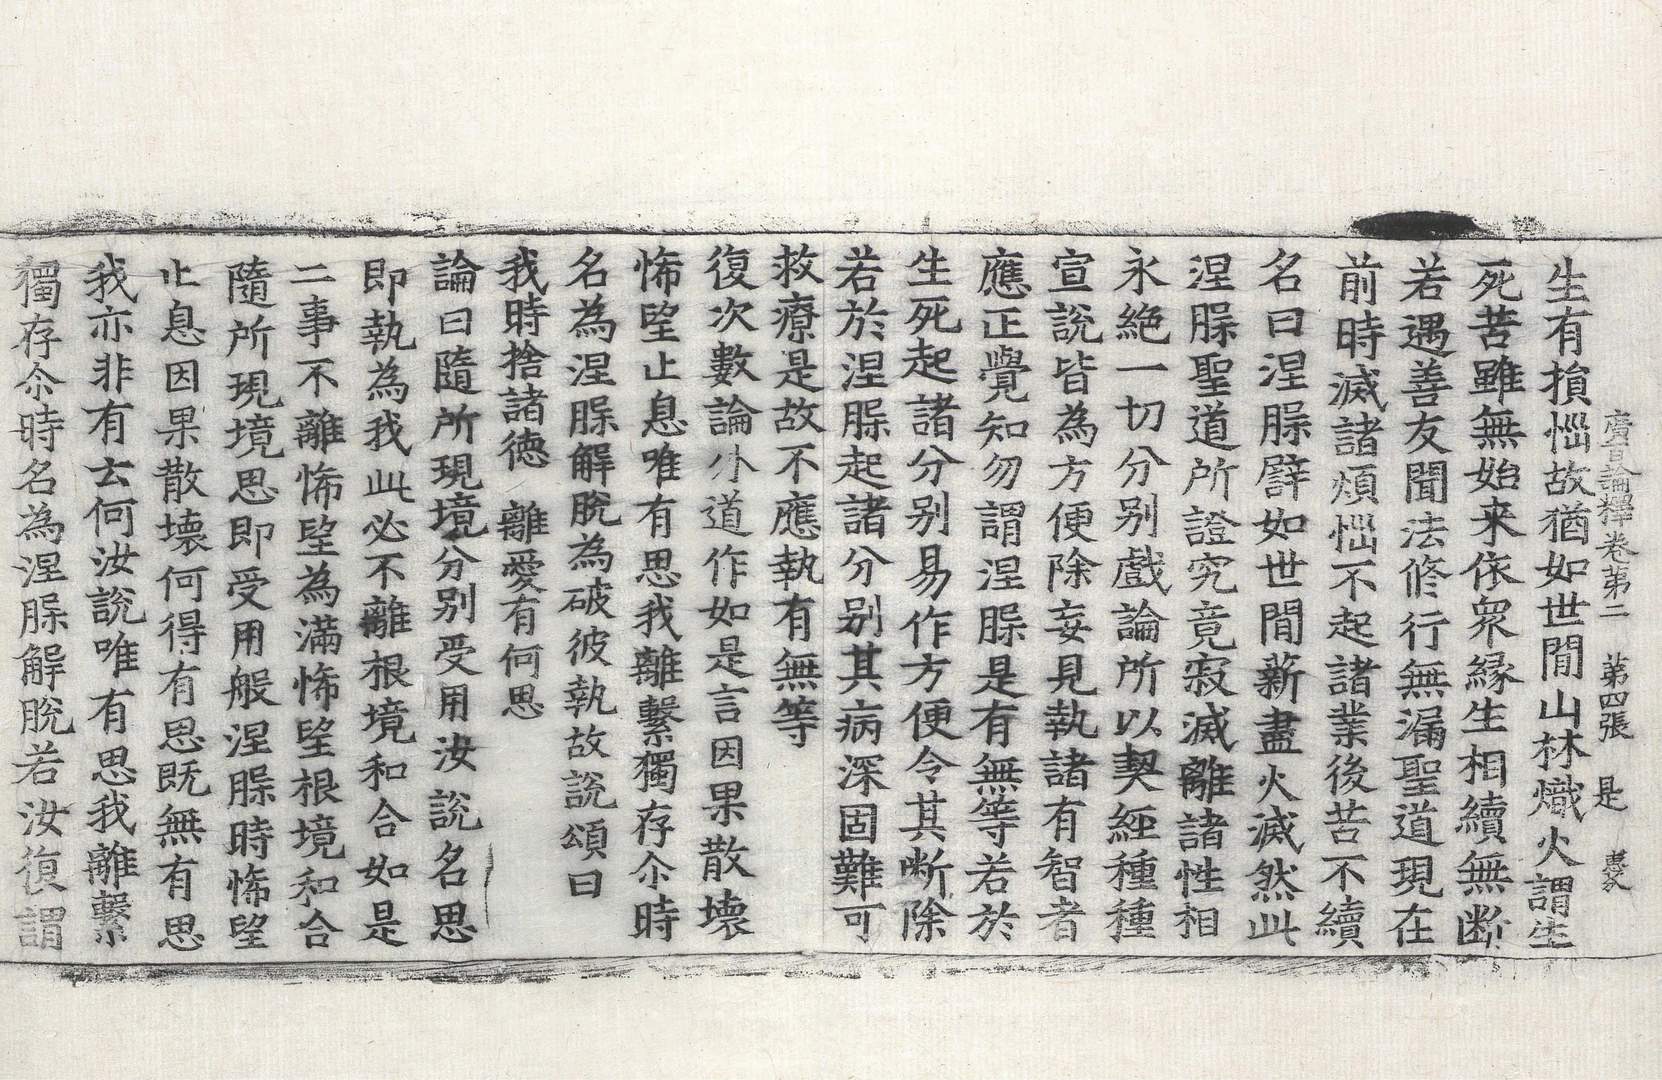 廣百論釋卷第二　第四張　是
生有損惱故猶如世間山林熾火謂生
死苦雖無始来依衆縁生相續無断
若遇善友聞法修行無漏聖道現在
前時滅諸煩惱不起諸業後苦不續
名曰涅脲譬如世間薪盡火滅然此
涅脲聖道所證究竟寂滅離諸性相
永絶一切分别戲論所以契經種種
宣說皆為方便除妄見執諸有智者
應正覺知勿謂涅脲是有無等若於
生死起諸分别易作方便令其断除
若於涅脲起諸分别其病深固難可
救療是故不應執有無等
復次數論外道作如是言因果散壞
悕望止息唯有思我離繫獨存尒時
名為涅脲解脫為破彼執故說頌曰
我時捨諸德　離愛有何思
論曰隨所現境分别受用汝說名思
即執為我此必不離根境和合如是
二事不離悕望為滿悕望根境和合
隨所現境思即受用般涅脲時悕望
止息因果散壞何得有思既無有思
我亦非有去何汝說唯有思我離繫
獨存尒時名為涅脲解脫若汝復謂